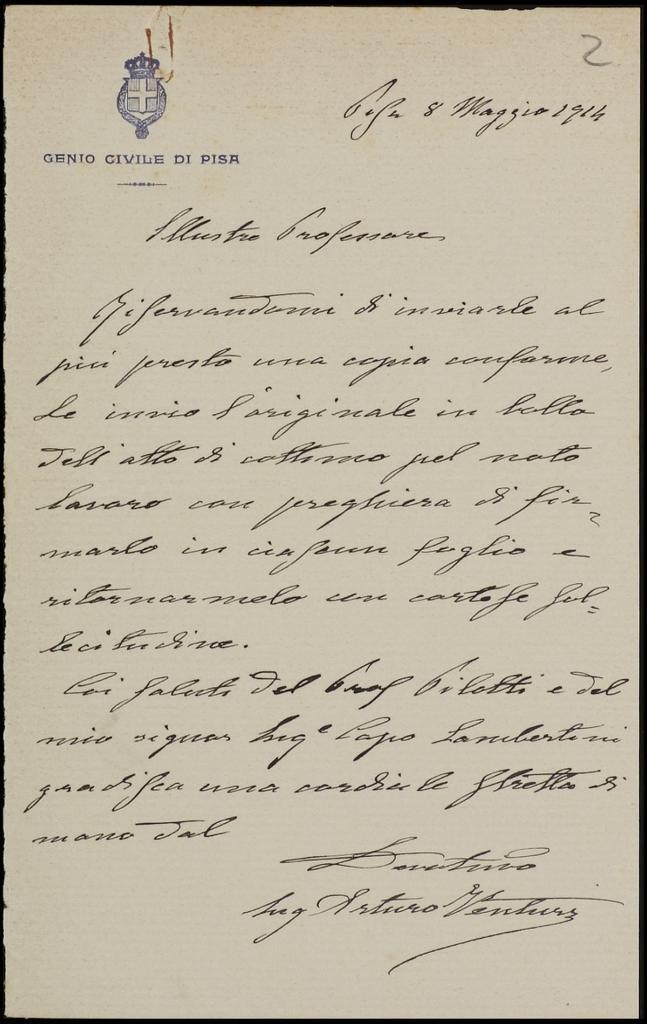 2
GENIO CIVILE DI PISA
Pisa 8 Maggio 1914
Illustre Professore
Riservandomi di inviarle al
più presto una copia conforme,
Le invio l'originale in bollo
dell'atto di cottimo pel noto
lavoro con preghiera di fir=
marlo in ciascun foglio e
ritornarmelo con cortese sol=
lecitudine.
Coi saluti del Prof Pilotti e del
mio signor Ing<sup>e</sup> Capo Lambertini
gradisca una cordiale stretta di
mano dal
Devotmo
Ing Arturo Venturi